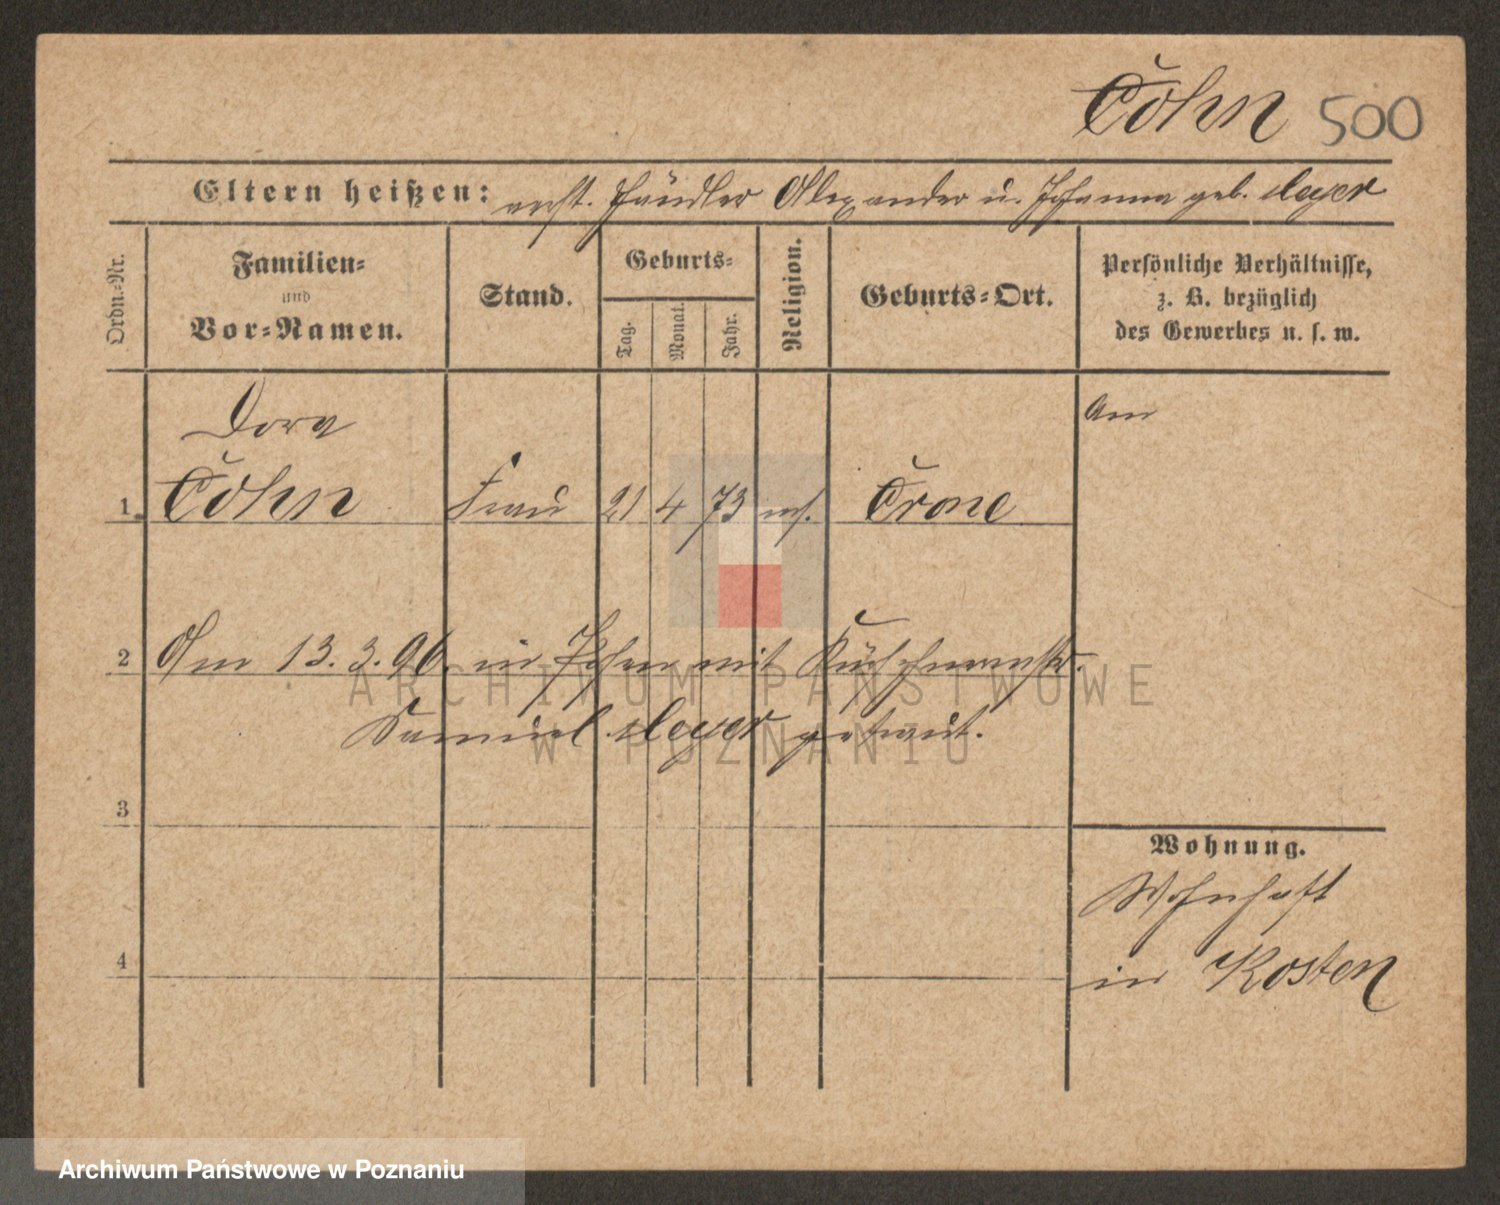 Cohn 500
Eltern heißen: verst. Händler Alexander u. Johanna geb. Meyer
Ordn.-Nr.
Familien-
und
Vor-Namen.
Stand.
Geburts-
Tag.
Monat.
Jahr.
Religion.
Geburts-Ort.
Persönliche Verhältnisse,
z. B. bezüglich
des Gewerbes u. s. w.
Dora
Am
1. Cohn Frau 21 4 73 mos. Crone
2 Am 13. 3. 96. in Posen mit
Samuel Meyer getraut.
3
Wohnung.
Wohnhaft
4
in Kosten
ARCHIWUM PAŃSTWOWE
W POZNANIU
Archiwum Państwowe w Poznaniu